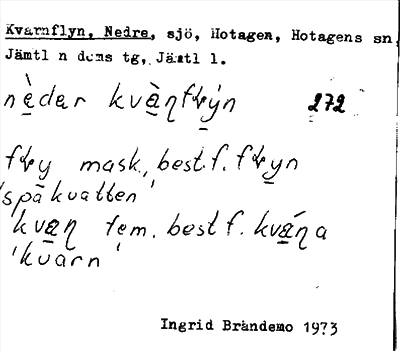 Kvarnflyn, Nedre, sjö, Hotagen, Hotagens sn,
Jämtl n doms tg, Jämtl l.
nèdar kvæ̀ṇfɫýn 272
fɫy mask., best.f. fɫyn
'spåkvatten'
kvæṇ fem. best f. kvǽṇa
'kvarn'
Ingrid Brändemo 1973